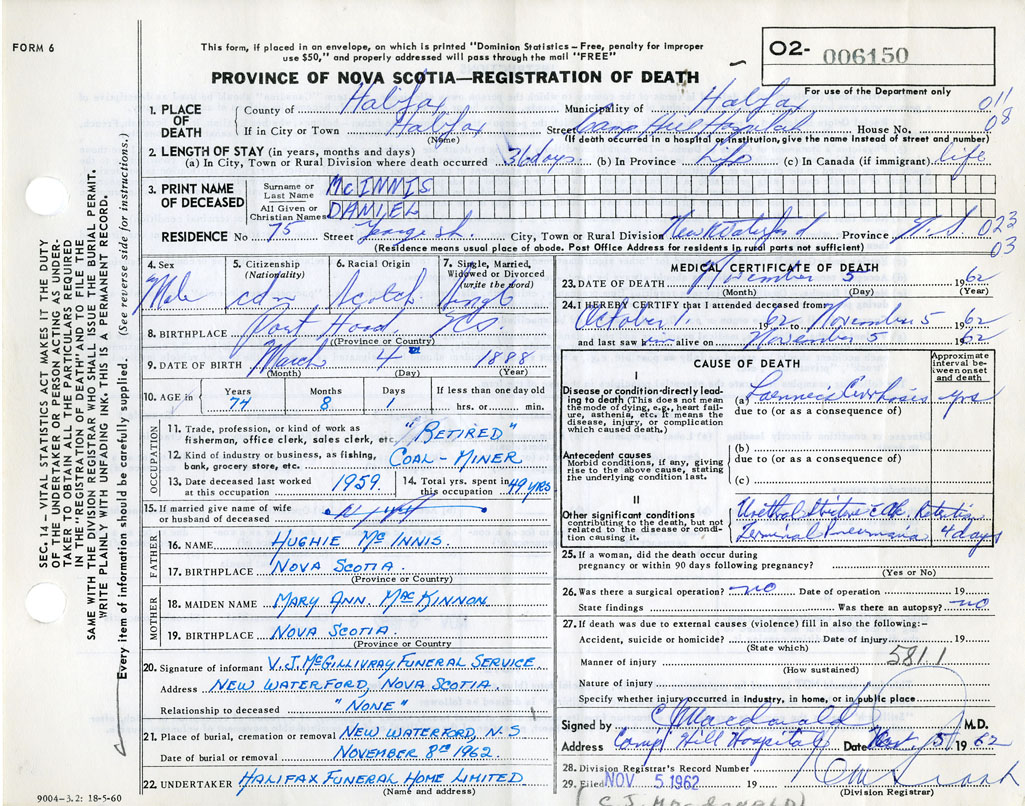 FORM 6
This form, if placed in an envelope, on which is printed "Dominion Statistics – Free, penalty for improper
use $50," and properly addressed will pass through the mail "FREE"
O2- 006150
PROVINCE OF NOVA SCOTIA—REGISTRATION OF DEATH
For use of the Department only
1. PLACE OF DEATH
County of Halifax Municipality of Halifax 011
If in City or Town Halifax Street Camp Hill Hospital House No. 08
(Name) (If death occurred in a hospital or institution, give the name instead of street and number)
2. LENGTH OF STAY (in years, months and days)
(a) In City, Town or Rural Division where death occurred 36 days (b) In Province life (c) In Canada (if immigrant) life
3. PRINT NAME OF DECEASED
Surname or Last Name McINNIS
All Given or Christian Names DANIEL
RESIDENCE No 75 Street George St. City, Town or Rural Division New Waterford Province N.S 023
(Residence means usual place of abode. Post Office Address for residents in rural parts not sufficient) 03
4. Sex
Male
5. Citizenship
(Nationality)
cdn
6. Racial Origin
Scotch
7. Single, Married,
Widowed or Divorced
(write the word)
Single
8. BIRTHPLACE Port Hood, N.S.
(Province or Country)
9. DATE OF BIRTH March 4th 1888
(Month) (Day) (Year)
10. AGE in Years 74 Months 8 Days 1 If less than one day old
hrs. or min.
OCCUPATION
11. Trade, profession, or kind of work as
fisherman, office clerk, sales clerk, etc. "RETIRED"
12. Kind of industry or business, as fishing,
bank, grocery store, etc. COAL-MINER
13. Date deceased last worked
at this occupation 1959.
14. Total yrs. spent in
this occupation 49 YRS
15. If married give name of wife
or husband of deceased
FATHER
16. NAME HUGHIE McINNIS.
17. BIRTHPLACE NOVA SCOTIA.
(Province or Country)
MOTHER
18. MAIDEN NAME MARY ANN MACKINNON
19. BIRTHPLACE NOVA SCOTIA.
(Province or Country
20. Signature of informant V.J. McGILLIVRAY FUNERAL SERVICE
Address NEW WATERFORD, NOVA SCOTIA.
Relationship to deceased "NONE"
21. Place of burial, cremation or removal NEW WATERFORD, N.S
Date of burial or removal NOVEMBER 8th 1962
22. UNDERTAKER HALIFAX FUNERAL HOME LIMITED
(Name and address)
MEDICAL CERTIFICATE OF DEATH
23. DATE OF DEATH November 5 1962
(Month) (Day) (Year)
24. I HEREBY CERTIFY that I attended deceased from
October 1 1962 to November 5 1962
and last saw him alive on November 5 1962
CAUSE OF DEATH
Approximate interval between onset and death
I
Disease or condition directly leading to death (This does not mean
the mode of dying, e.g., heart failure, asthenia, etc. It means the
disease, injury, or complication
which caused death.)
(a) Laennec's Cirrhosis yrs
due to (or as a consequence of)
Antecedent causes
Morbid conditions, if any, giving
rise to the above cause, stating
the underlying condition last.
(b)
due to (or as a consequence of)
(c)
II
Other significant conditions
contributing to the death, but not
related to the disease or condition causing it.
Urethral Stricture c Retention
Terminal Pneumonia 4 days
25. If a woman, did the death occur during
pregnancy or within 90 days following pregnancy?
(Yes or No)
26. Was there a surgical operation? no Date of operation 19
State findings Was there an autopsy? no
27. If death was due to external causes (violence) fill in also the following:-
Accident, suicide or homicide? Date of injury 19
(State which)
Manner of injury 581.1
(How sustained)
Nature of injury
Specify whether injury occurred in industry, in home, or in public place
Signed by C J Macdonald M.D.
Address Camp Hill Hospital Date Nov 5 1962
28. Division Registrar's Record Number
29. Filed NOV 5 1962 19
(Division Registrar)
(C.J. MACDONALD)
SEC. 14 – VITAL STATISTICS ACT MAKES IT THE DUTY
OF THE UNDERTAKER OR PERSON ACTING AS UNDERTAKER TO OBTAIN ALL THE PARTICULARS REQUIRED
IN THE "REGISTRATION OF DEATH" AND TO FILE THE
SAME WITH THE DIVISION REGISTRAR WHO SHALL ISSUE THE BURIAL PERMIT.
WRITE PLAINLY WITH UNFADING INK. THIS IS A PERMANENT RECORD.
Every item of information should be carefully supplied. (See reverse side for instructions.)
9004-3.2: 18-5-60